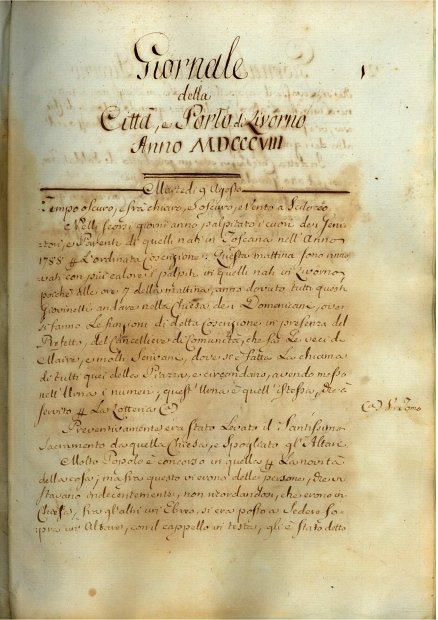 Giornale
della
Città, e Porto di Livorno
Anno MDCCCVIII
Martedi 9 Agosto
Tempo oscuro, e frà chiaro, e oscuro, e Vento a Scilocco
Nelli scorsi giorni anno palpitato i cuori dei Geni-
tori, e Parenti di quelli nati in Toscana nell'Anno
1788 p L'ordinata Coscrizione: Questa mattina sono rinno-
vati con più calore i palpiti in quelli nati in Livorno
poiche alle ore 7 della mattina, anno dovuto tutti questi
Giovinetti andare nella Chiesa dei Domenicani, ove
si fanno Le funzioni di detta Coscrizione in presenza del
Prefetto, del Cancelliere di Comunità, che fà Le veci di
Maire, e molti Scrivani, dove si è fatta La chiama
di tutti quei della Piazza, e circondario, avendo messo
nell'Urna i numeri, quest'Urna è quell'istessa, che à
servito p La Lotteria (a)
(a) 
Preventivamente era stato Levato il Santissimo
Sacramento da quella Chiesa, e Spogliato gl'Altari
Molto Popolo è concorso in quella p La novità
della cosa; ma frà questo vi erono delle persone, che vi
stavano indecentemente, non ricordandosi, che erono in
Chiesa, frà gl'altri un'Ebreo, si era posto a Sedere so-
pra un'Altare, con il cappello in testa, gli è stato detto